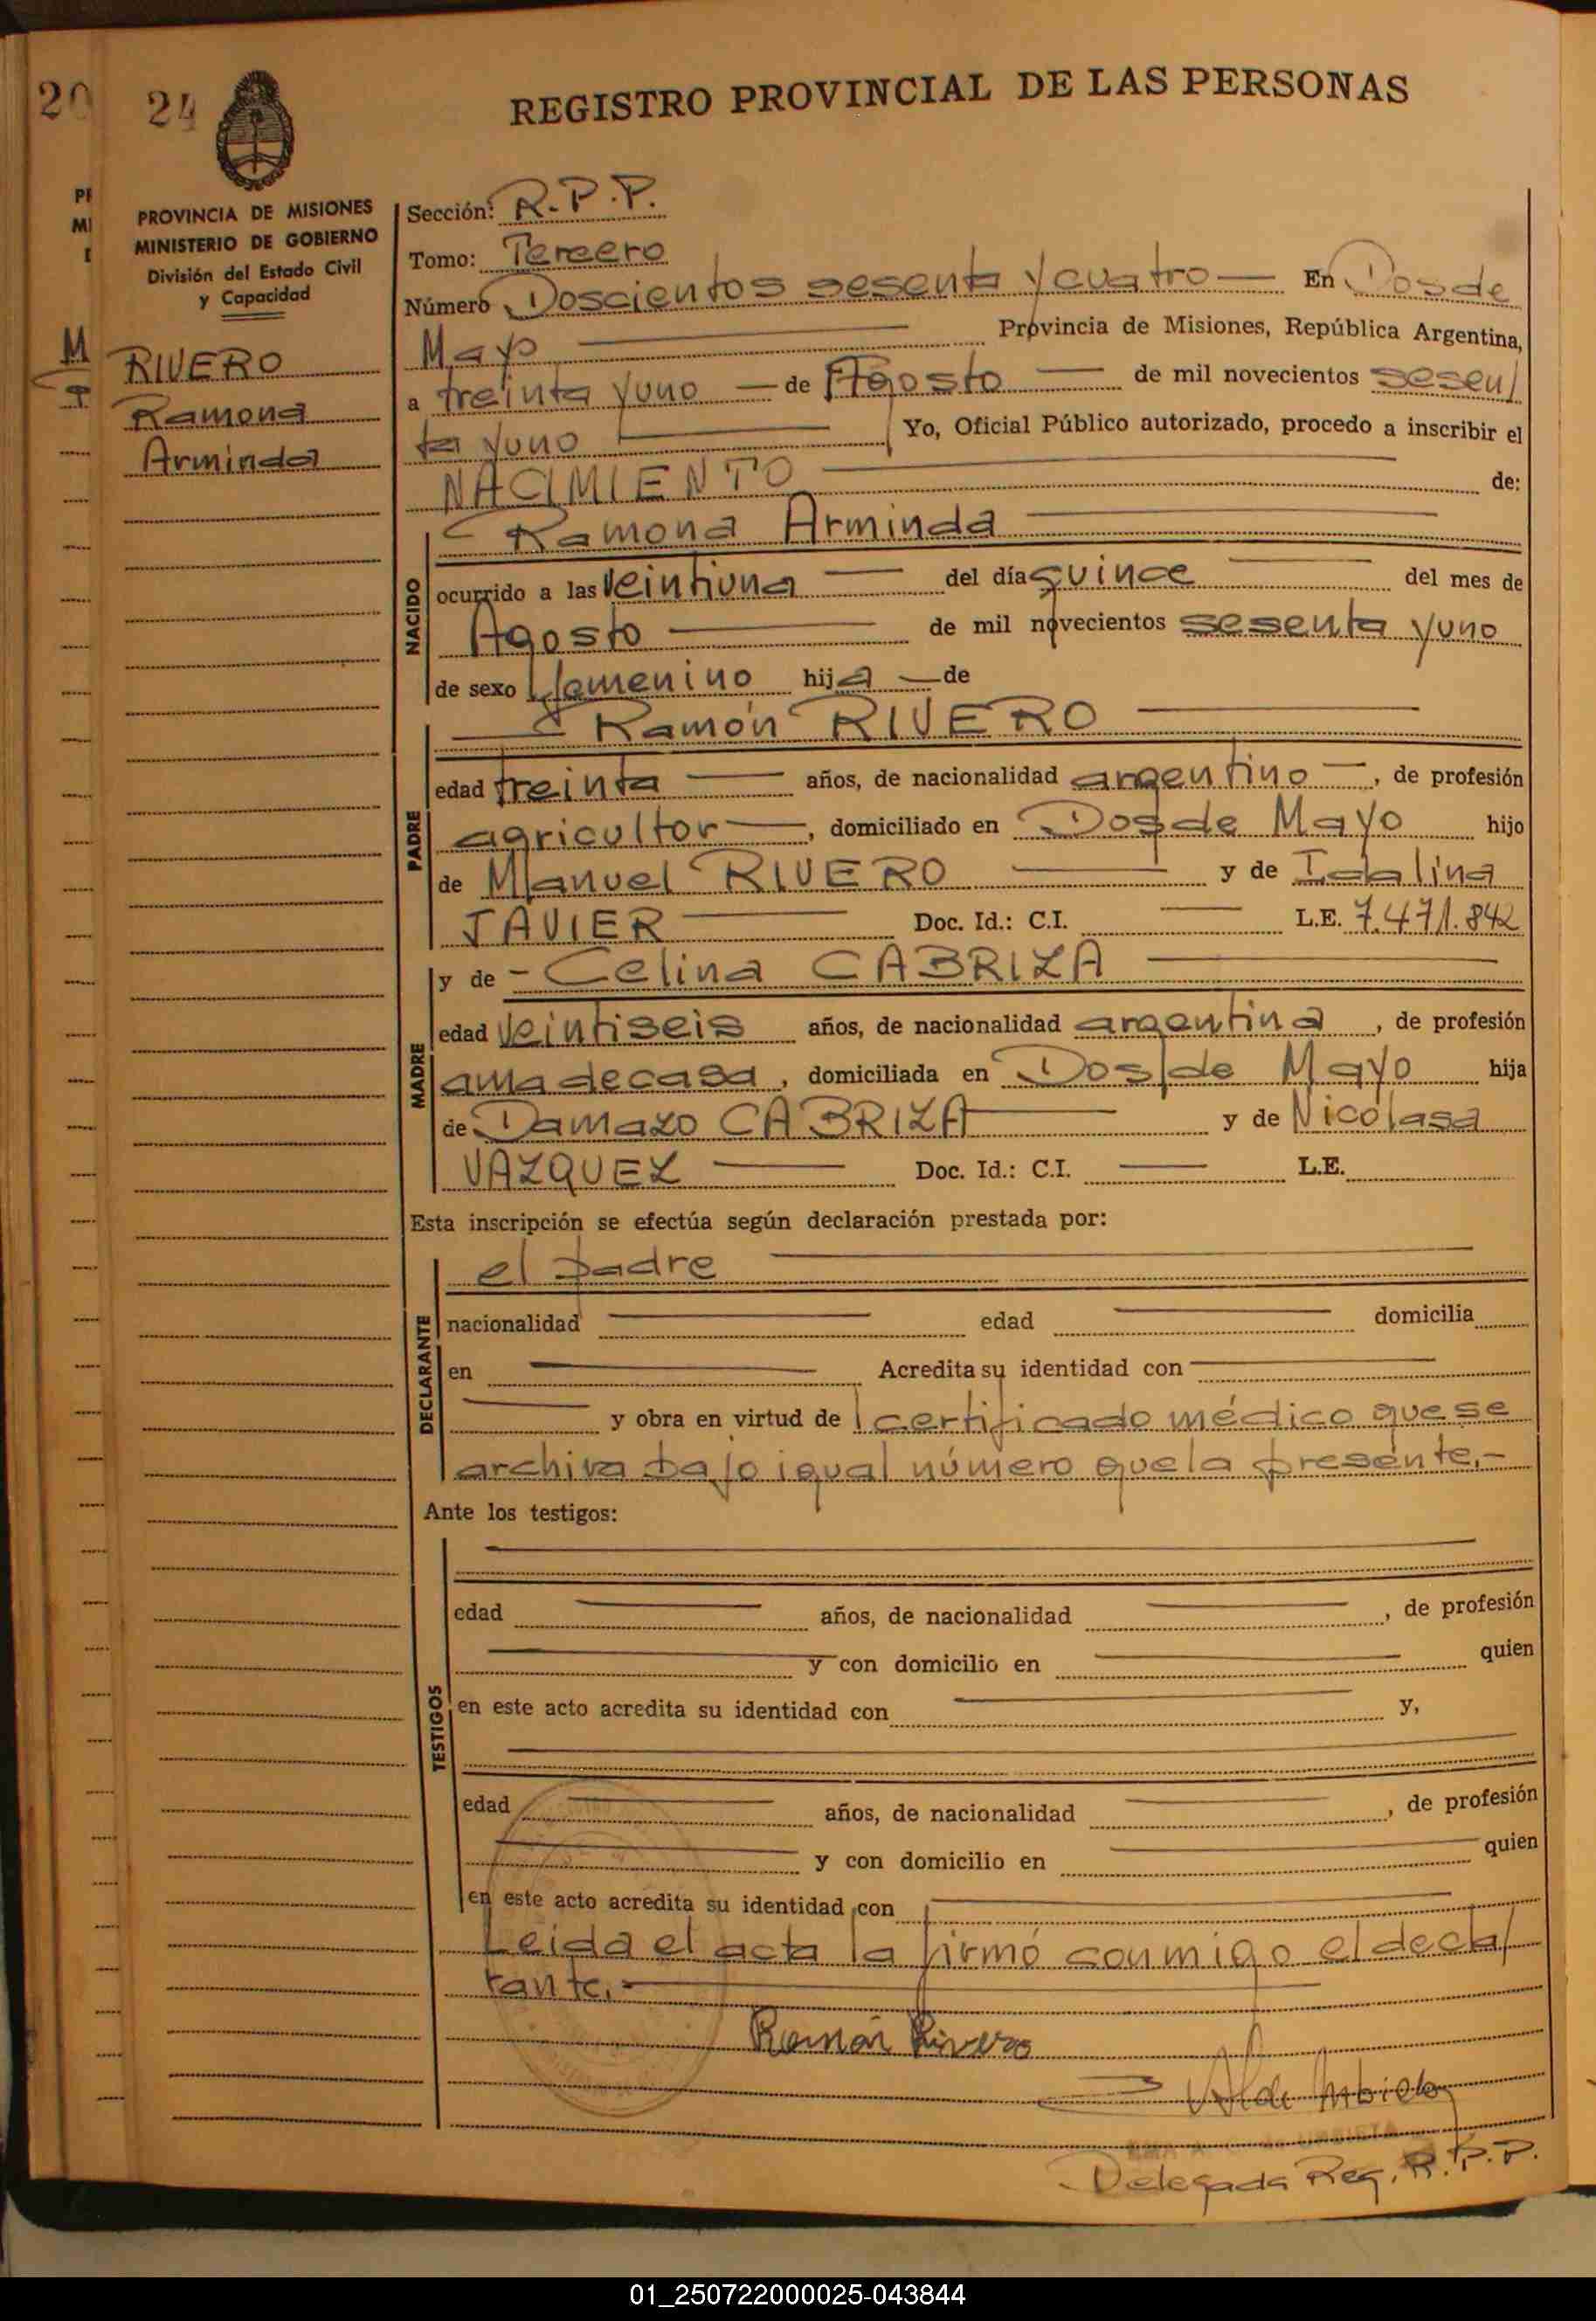 20 24
REGISTRO PROVINCIAL DE LAS PERSONAS
PROVINCIA DE MISIONES
MINISTERIO DE GOBIERNO
División del Estado Civil
y Capacidad
RIVERO
Ramona
Arminda
Sección: R.P.P.
Tomo: Tercero
Número Doscientos sesenta y cuatro — En Dos de
Mayo Provincia de Misiones, República Argentina,
a treinta y uno — de Agosto — de mil novecientos sesen/
ta y uno Yo, Oficial Público autorizado, procedo a inscribir el
NACIMIENTO de:
NACIDO
Ramona Arminda
ocurrido a las veintiuna — del día quince del mes de
Agosto — de mil novecientos sesenta y uno
de sexo femenino hija — de
PADRE
Ramón RIVERO
edad treinta — años, de nacionalidad argentino —, de profesión
agricultor —, domiciliado en Dos de Mayo hijo
de Manuel RIVERO — y de
JAVIER — Doc. Id.: C.I. — L.E. 7.471.842
MADRE
y de - Celina CABRIZA —
edad veintiseis años, de nacionalidad argentina, de profesión
ama de casa, domiciliada en Dos de Mayo hija
de Damazo CABRIZA — y de Nicolasa
VAZQUEZ — Doc. Id.: C.I. — L.E.
Esta inscripción se efectúa según declaración prestada por:
DECLARANTE
el padre —
nacionalidad — edad — domicilia
en — Acredita su identidad con —
— y obra en virtud de certificado médico que se
archiva bajo igual número que la presente.-
Ante los testigos:
TESTIGOS
edad — años, de nacionalidad —, de profesión
— y con domicilio en — quien
en este acto acredita su identidad con — y,
edad — años, de nacionalidad —, de profesión
— y con domicilio en — quien
en este acto acredita su identidad con —
Leida el acta la firmó conmigo el decla/
rante.-
Ramón Rivero
Delegada Reg. R.P.P.
01_250722000025-043844